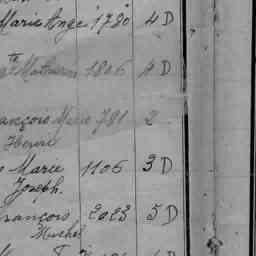 Marie Ange 1780 4 D
te Mathurin 1806 4 D
ançois Marie 781 2
Marie 1106 3 D
Joseph.
rançois 2023 5 D
Michel